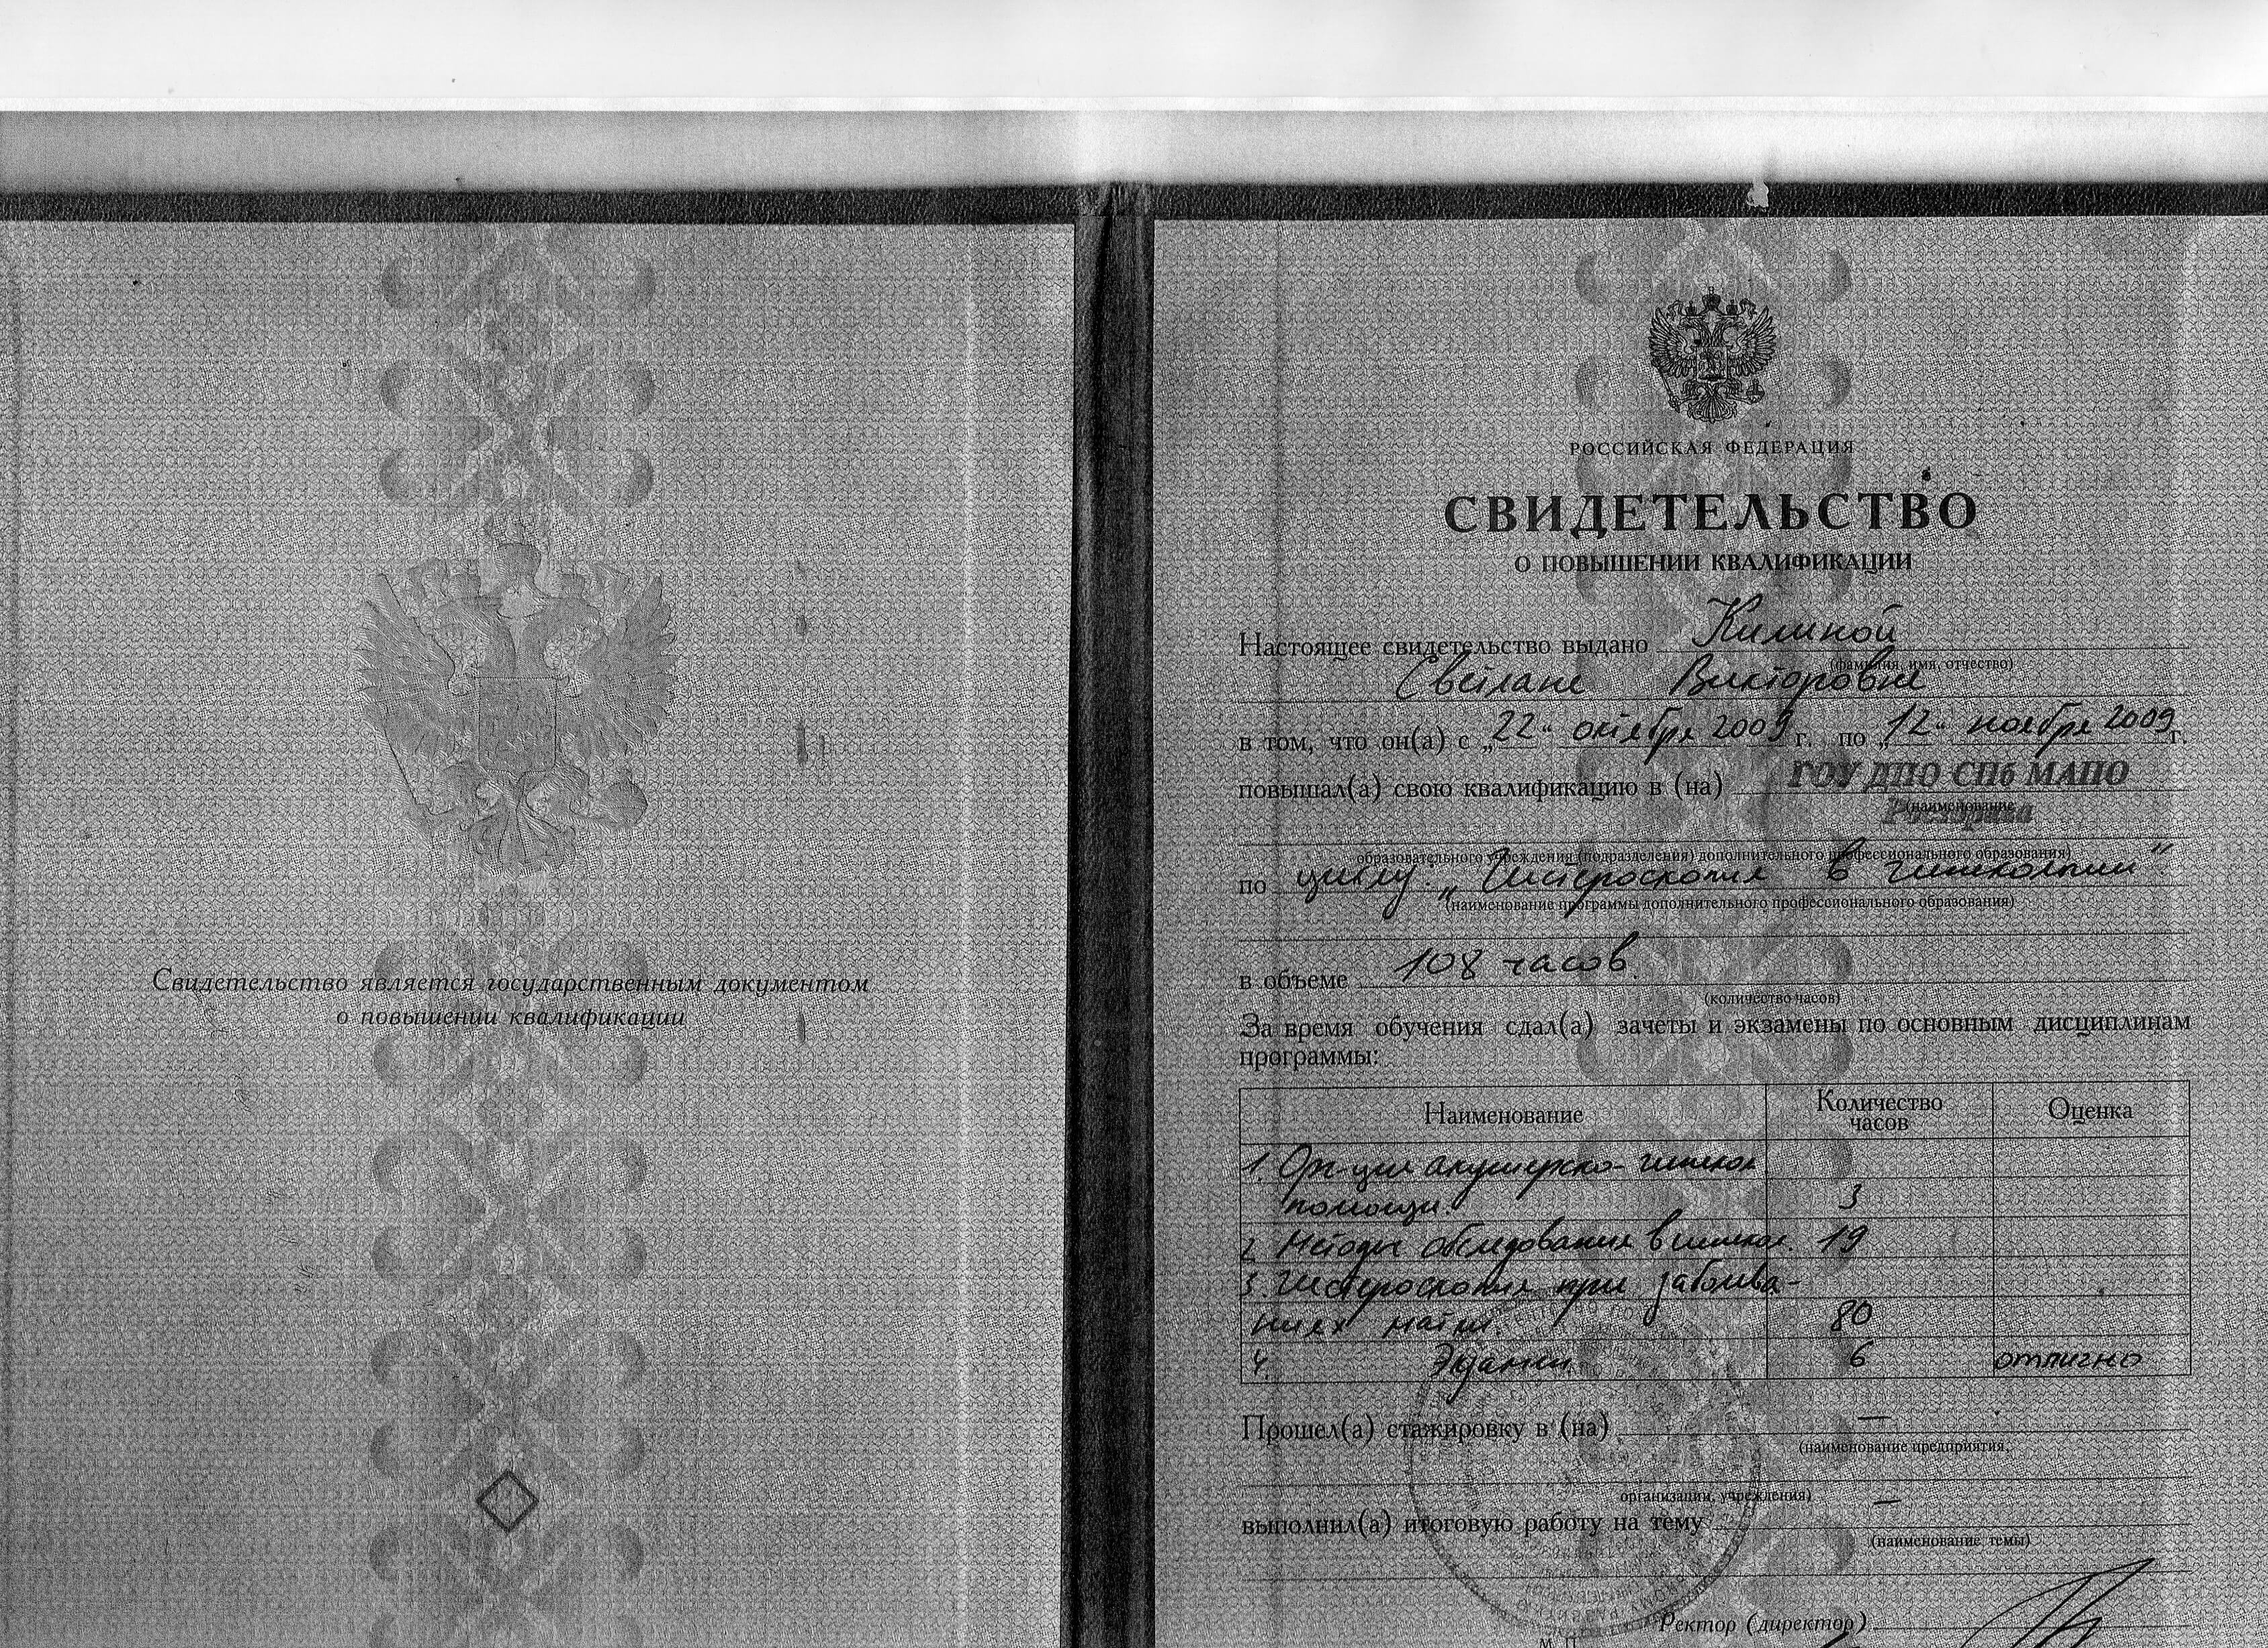 Свидетельство является государственным документом
о повышении квалификации
РОССИЙСКАЯ ФЕДЕРАЦИЯ
СВИДЕТЕЛЬСТВО
О ПОВЫШЕНИИ КВАЛИФИКАЦИИ
Настоящее свидетельство выдано Килиной
(фамилия, имя, отчество)
Светлане Викторовне
в том, что он(а) с „22“ октября 2009 г. по „12“ ноября 2009 г.
повышал(а) свою квалификацию в (на) ГОУ ДПО СПб МАПО
(наименование
Росздрава
образовательного учреждения (подразделения) дополнительного профессионального образования)
по циклу: „Гистероскопия в гинекологии“
(наименование программы дополнительного профессионального образования)
в объеме 108 часов.
(количество часов)
За время обучения сдал(а) зачеты и экзамены по основным дисциплинам
программы:
Наименование Количество часов Оценка
1. Орг-ция акушерско-гинекол.
помощи. 3
2. Методы обследования в гинекол. 19
3. Гистероскопия при заболева-
ниях матки. 80
4. Экзамен 6 отлично
Прошел(а) стажировку в (на) —
(наименование предприятия,
организации, учреждения)
выполнил(а) итоговую работу на тему —
(наименование темы)
Ректор (директор)
М. П.